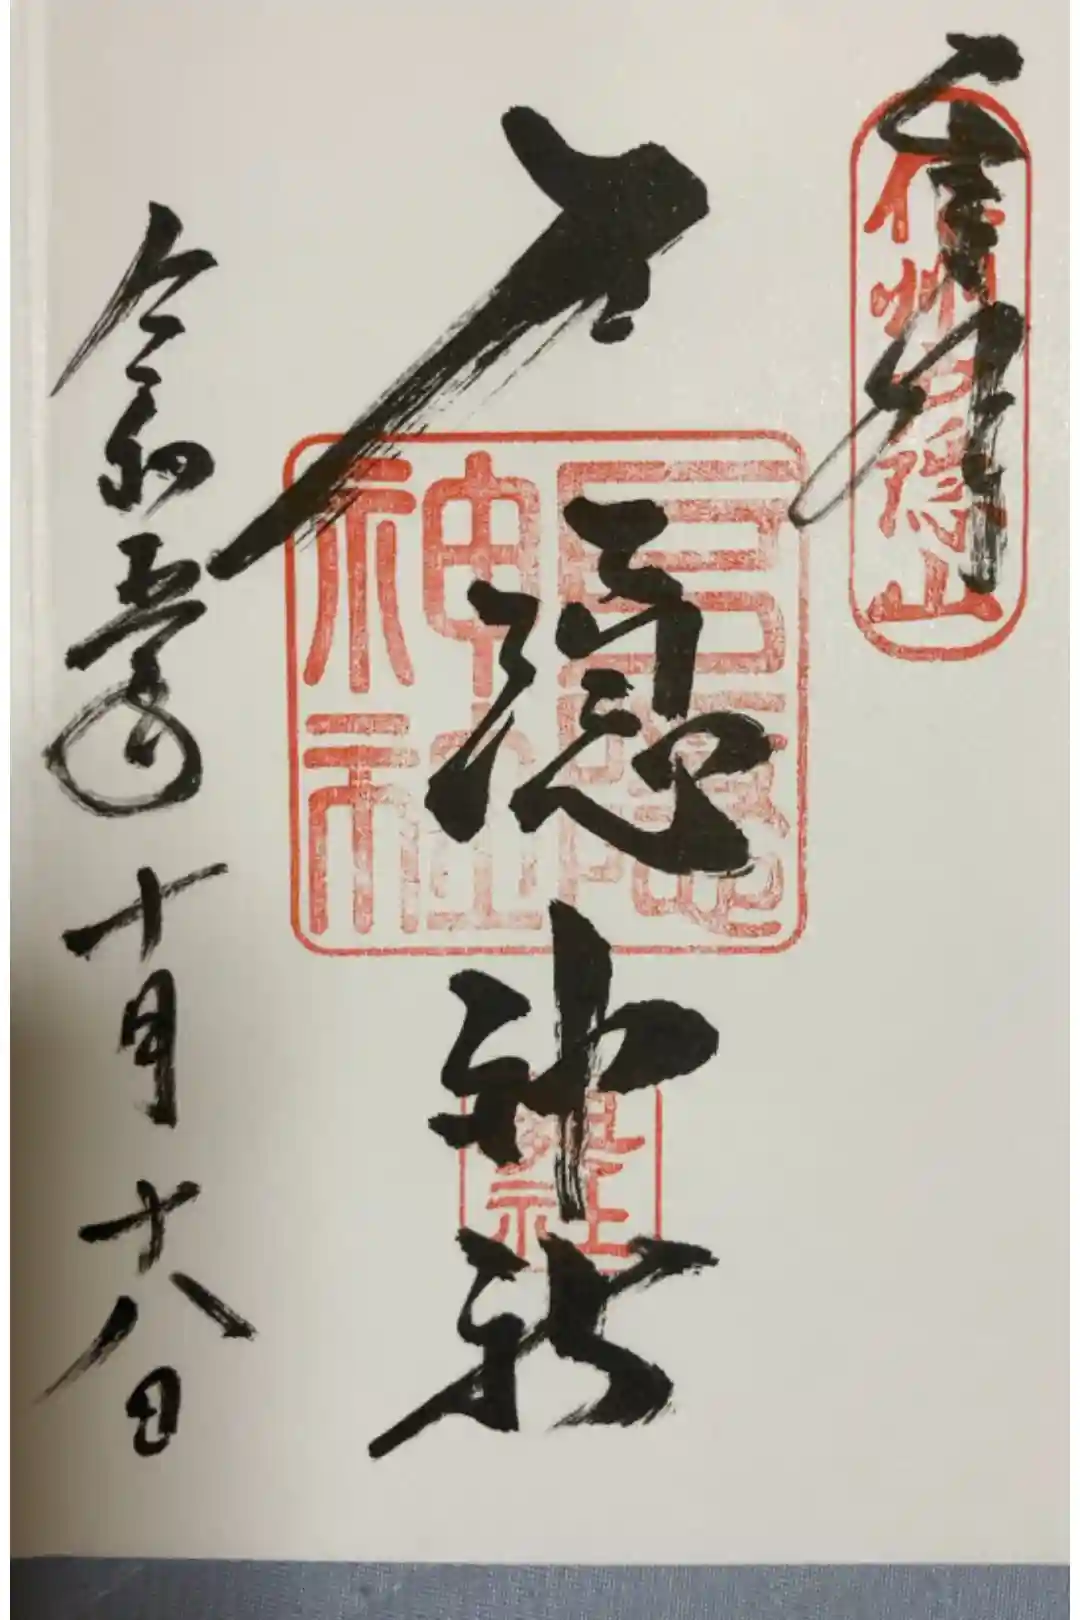 奉拝
信州戸隠山
戸隠神社
戸隠神社
奥社
令和五年十月十八日